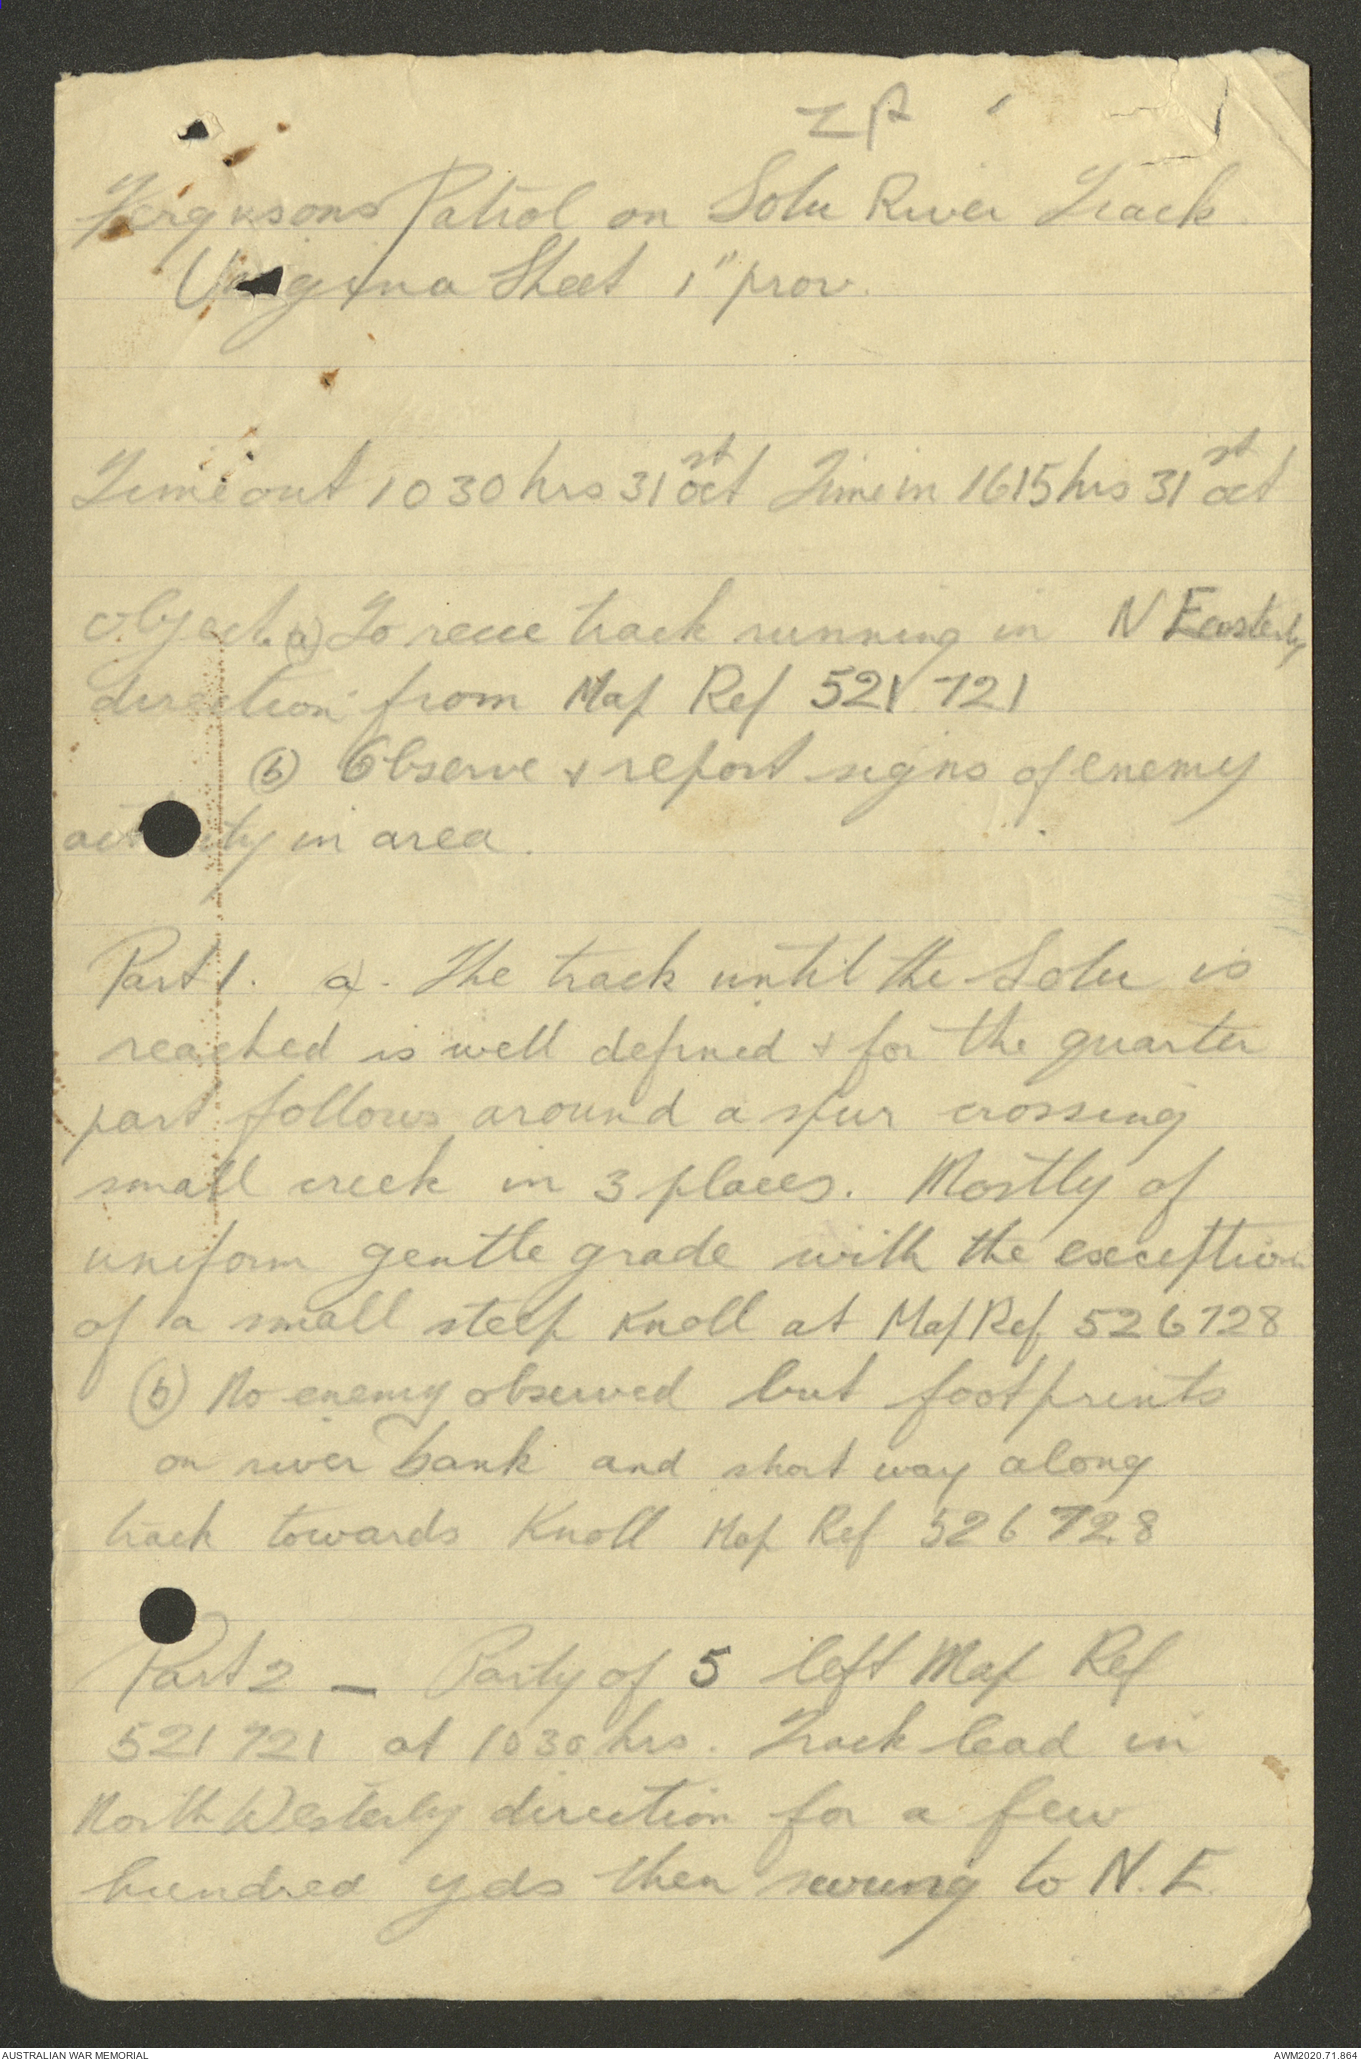 Fergusons Patrol on Solu River Track
Sheet 1" prov.
Time out 1030 hrs 31st Oct Time in 1615 hrs 31st Oct
Object. (a) To recce track running in N Easterly
direction from Map Ref 521721
(b) Observe & report signs of enemy
activity in area.
Part 1. a. The track until the Solu is
reached is well defined & for the quarter
part follows around a spur crossing
small creek in 3 places. Mostly of
uniform gentle grade with the exception
of a small steep knoll at Map Ref 526728
(b) No enemy observed but footprints
on river bank and short way along
track towards Knoll Map Ref 526728
Part 2 - Party of 5 left Map Ref
521721 at 1030 hrs. Track lead in
North Westerly direction for a few
hundred yds then swung to N.E.
AUSTRALIAN WAR MEMORIAL
AWM2020.71.864